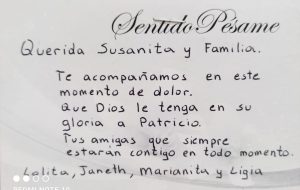 Sentido Pésame
Querida Susanita y Familia.
Te acompañamos en este
momento de dolor.
Que Dios le tenga en su
gloria a Patricio.
Tus amigas que siempre
estarán contigo en todo momento.
Lolita, Janeth, Marianita y Ligia